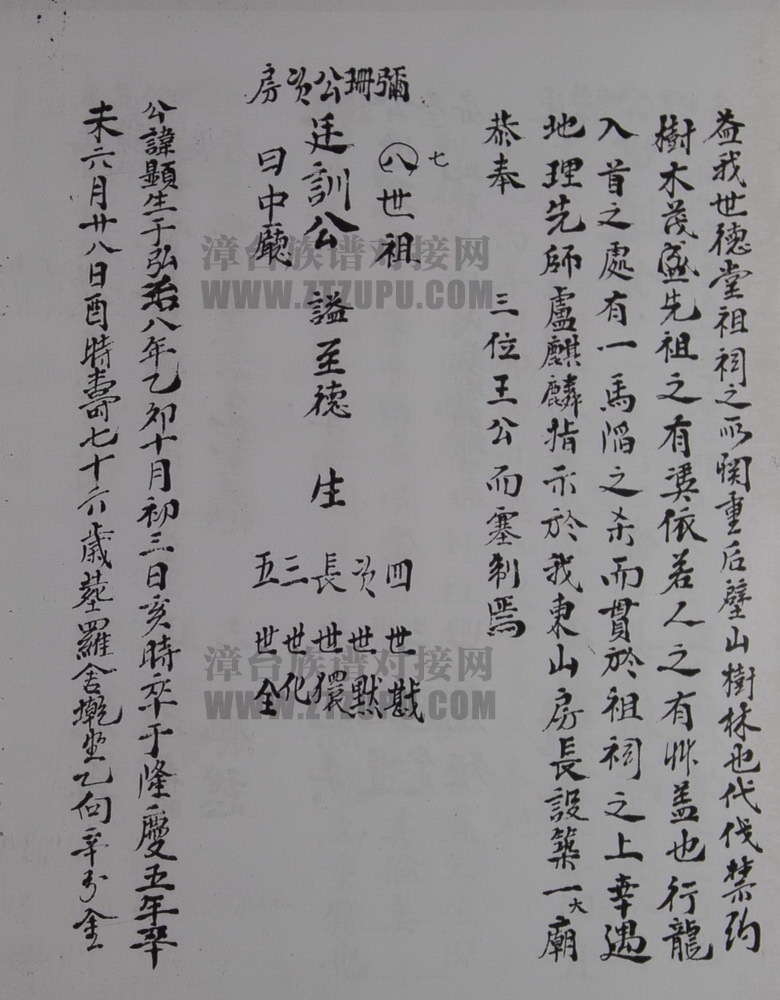 益我世德堂祖祠之所関重后壁山樹林也代伐禁約
樹木茂盛先祖之有奠依若人之有帡盖也行龍
入首之處有一馬陷之杀而貫於祖祠之上幸遇
地理先師盧麒麟指示於我東山房長設築一大廟
恭奉 三位王公而塞制焉
七
八世祖
彌珊公次房
廷訓公 謚至德 生
曰中廳
四世戡
次世默
長世儇
三世化
五世全
公諱顕生于弘治八年乙卯十月初三日亥時卒于隆慶五年辛
未六月廿八日酉時壽七十六歲塟羅舍墘坐乙向辛分金
漳台族谱对接网
WWW.ZTZUPU.COM
漳台族谱对接网
WWW.ZTZUPU.COM